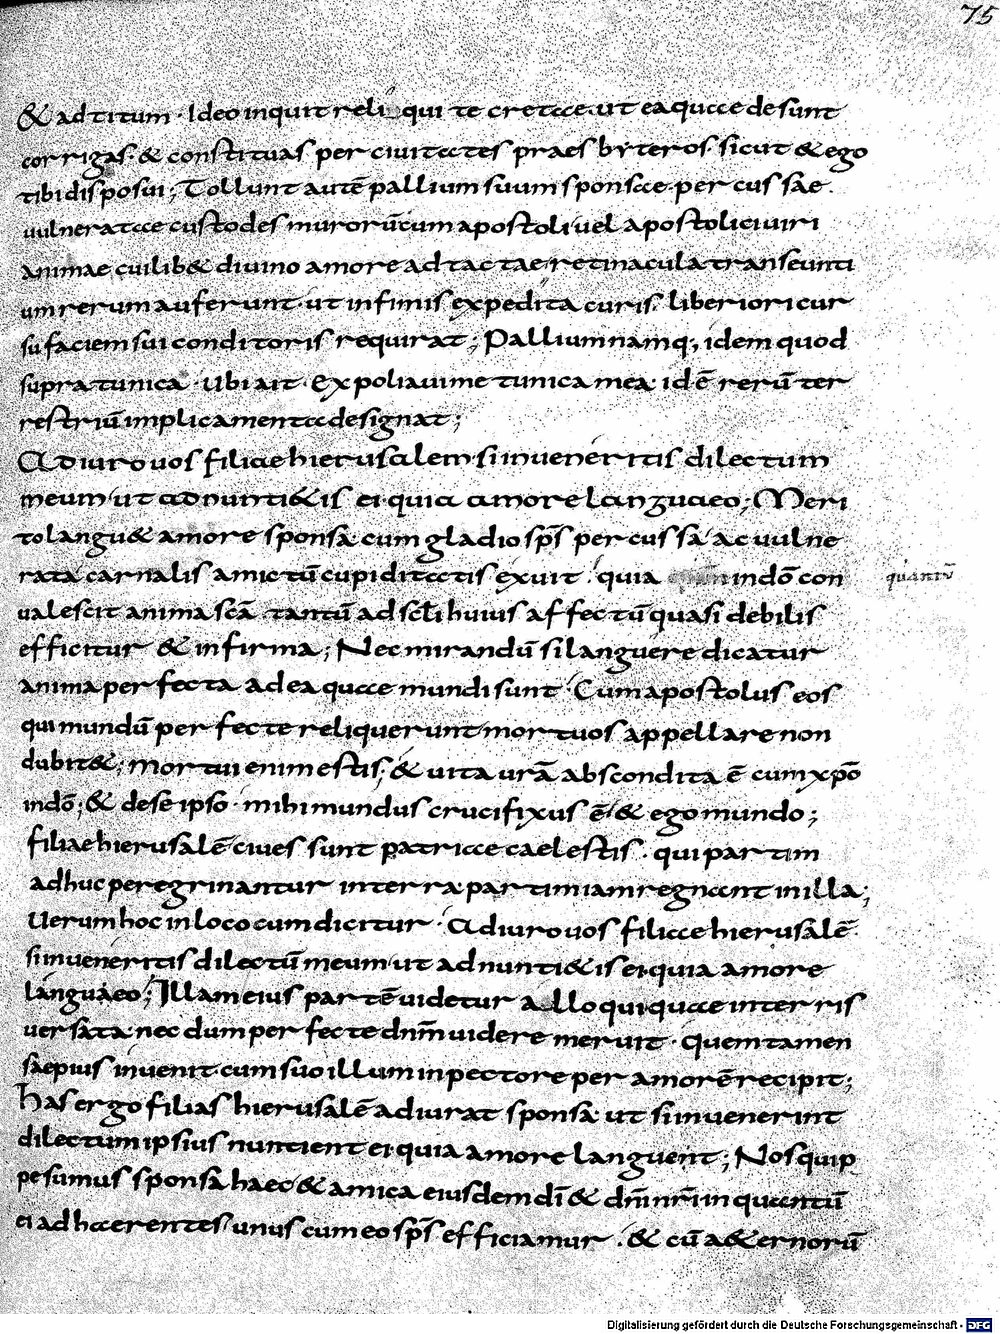 75
& ad titum · Ideo inquit reliqui te cretae ut ea quae desunt
corrigas · & constituas per ciuitates praesbyteros sicut & ego
tibi disposui ; Tollunt autē pallium suum sponsae percussae
uulneratae custodes murorū cum apostoli uel apostolici uiri
animae cuilib& diuino amore ad tactae retinacula transeunti
um rerum auferunt · ut infimis expedita curis · liberiori cur
su faciem sui conditoris requirat ; Pallium namq; idem quod
supra tunica · Ubi ait · Expoliaui me tunica mea · id ē rerū ter
restriū implicamenta designat ;
Adiuro uos filiae hierusalem si inueneritis dilectum
meum ut adnunti&is ei quia amore langueo ; Meri
to langu& amore sponsa cum gladio sp̄s percussa ac uulne
rata carnalis amictū cupiditatis exuit · quia in dō con
quantū
ualescit anima scā · tantū ad sc̄li huius affectū quasi debilis
efficitur & infirma ; Nec mirandū si languere dicatur
anima perfecta ad ea quae mundi sunt · Cum apostolus eos
qui mundū perfecte reliquerunt mortuos appellare non
dubit& ; mortui enim estis ; & uita urā abscondita ē cum xpō
in dō ; & de se ipso · mihi mundus crucifixus ē & ego mundo ;
filiae hierusalē ciues sunt patriae caelestis · qui partim
adhuc peregrinantur in terra partim iam regnant in illa ;
Uerum hoc in loco cum dicitur · Adiuro uos filiae hierusalē
si inueneritis dilectū meum ut adnunti&is ei quia amore
langueo ; Illam eius partē uidetur alloqui quae in terris
uersata necdum perfecte dnm̄ uidere meruit · quem tamen
saepius inuenit cum suo illum in pectore per amorē recipit ;
has ergo filias hierusalē adiurat sponsa ut si inuenerint
dilectum ipsius nuntient ei quia amore languent ; Nos quip
pe sumus sponsa haec & amica eiusdem dī & dnī nrī in quantū
ei adhaerentes unus cum eo sp̄s efficiamur · & cū a&ernorū
Digitalisierung gefördert durch die Deutsche Forschungsgemeinschaft - DFG